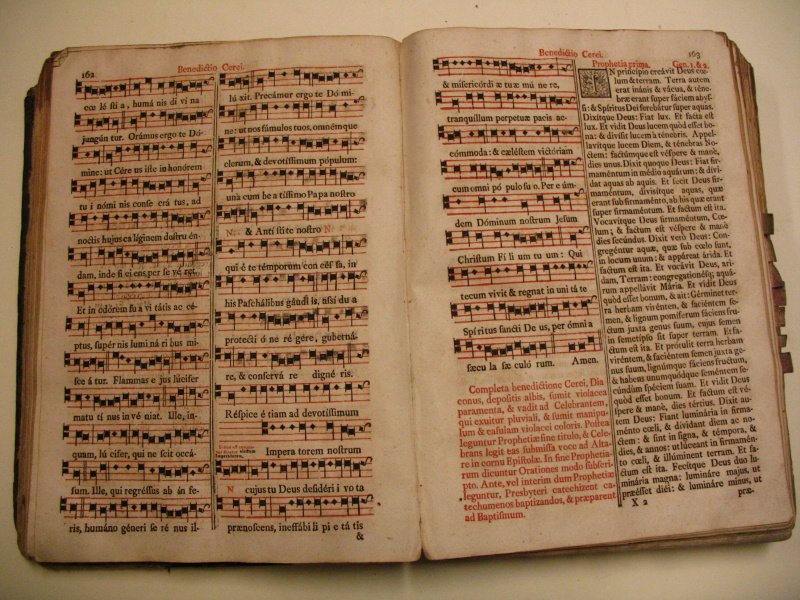 162
Benedictio Cerei.
cœ lé sti a, humá nis di ví na
jungún tur. Orámus ergo te Dó-
mine: ut Cére us iste in honórem
tu i nómi nis conse crá tus, ad
noctis hujus ca líginem destru én-
dam, inde fi ci ens per se vé ret.
Et in odórem su a vi tátis ac cé-
ptus, supér nis lumi ná ri bus mi-
sce á tur. Flammas e jus lúcifer
matu tí nus in vé niat. Ille, in-
quam, lú cifer, qui ne scit occá-
sum. Ille, qui regréssus ab ín fe-
ris, humáno géneri se ré nus il-
lú xit. Precámur ergo te Dó mi-
ne: ut nos fámulos tuos, omnémque
clerum, & devotíssimum pópulum:
una cum be a tíssimo Papa nostro
N. & Antí sti te nostro N.
qui é te témporum con cés sa, in
his Paschálibus gáudi is, assí du a
protecti ó ne ré gere, guberná-
re, & conservá re digné ris.
Réspice é tiam ad devotíssimum
Impera torem nostrum
N cujus tu Deus desidéri i vo ta
prænoscens, ineffábi li pi e tá tis
&
Benedictio Cerei.
163
& misericórdi æ tu æ mú ne re,
tranquíllum perpetuæ pacis ac-
cómmoda: & cœléstem victóriam
cum omni pó pulo su o. Per e úm-
dem Dóminum nostrum Jesum
Christum Fí li um tu um: Qui
tecum vivit & regnat in uni tá te
Spí ritus sancti De us, per ómni a
sæcu la sæ culó rum. Amen.
Completa benedictione Cerei, Dia
conus, depositis albis, sumit violacea
paramenta, & vadit ad Celebrantem,
qui exuitur pluviali, & sumit manipu-
lum & casulam violacei coloris. Postea
leguntur Prophetiæ sine titulo, & Cele-
brans legit eas submissa voce ad Alta-
re in cornu Epistolæ. In fine Prophetia-
rum dicuntur Orationes modo subscri-
pto. Ante, vel interim dum Prophetiæ
leguntur, Presbyteri catechizent ca-
techumenos baptizandos, & præparent
ad Baptismum.
Prophetia prima. Gen. 1. & 2.
IN princípio creávit Deus cœ-
lum & terram. Terra autem
erat inánis & vácua, & téne-
bræ erant super fáciem abys-
si: & Spíritus Dei ferebátur super aquas.
Dixítque Deus: Fiat lux. Et facta est
lux. Et vidit Deus lucem quòd esset bo-
na: & divísit lucem à ténebris. Appel-
lavítque lucem Diem, & ténebras No-
ctem: factúmque est véspere & manè,
dies unus. Dixit quoque Deus: Fiat fir-
maméntum in médio aquárum: & dívi-
dat aquas ab aquis. Et fecit Deus fir-
maméntum, divisítque aquas, quæ
erant sub firmaménto, ab his quæ erant
super firmaméntum. Et factum est ita.
Vocavítque Deus firmaméntum, Cœ-
lum; & factum est véspere & manè,
dies secúndus. Dixit verò Deus: Con-
gregéntur aquæ, quæ sub cœlo sunt,
in locum unum: & appáreat árida. Et
factum est ita. Et vocávit Deus, ari-
dam, Terram: congregationésq; aquá-
rum appellávit Mária. Et vidit Deus
quòd esset bonum, & ait: Gérminet ter-
ra herbam viréntem, & faciéntem se-
men, & lignum pomíferum fáciens fru-
ctum juxta genus suum, cujus semen
in semetípso sit super terram. Et fa-
ctum est ita. Et prótulit terra herbam
viréntem, & faciéntem semen juxta ge-
nus suum, lignúmque fáciens fructum,
& habens unumquódque seméntem se-
cúndùm spéciem suam. Et vidit Deus
quòd esset bonum. Et factum est vé-
spere & manè, dies tértius. Dixit au-
tem Deus: Fiant luminária in firma-
ménto cœli, & dívidant diem ac no-
ctem: & sint in signa, & témpora, &
dies, & annos: ut lúceant in firmamén-
to cœli, & illúminent terram. Et fa-
ctum est ita. Fecítque Deus duo lu-
minária magna: lumináre majus, ut
præésset diéi: & lumináre minus, ut
X 2
præ-